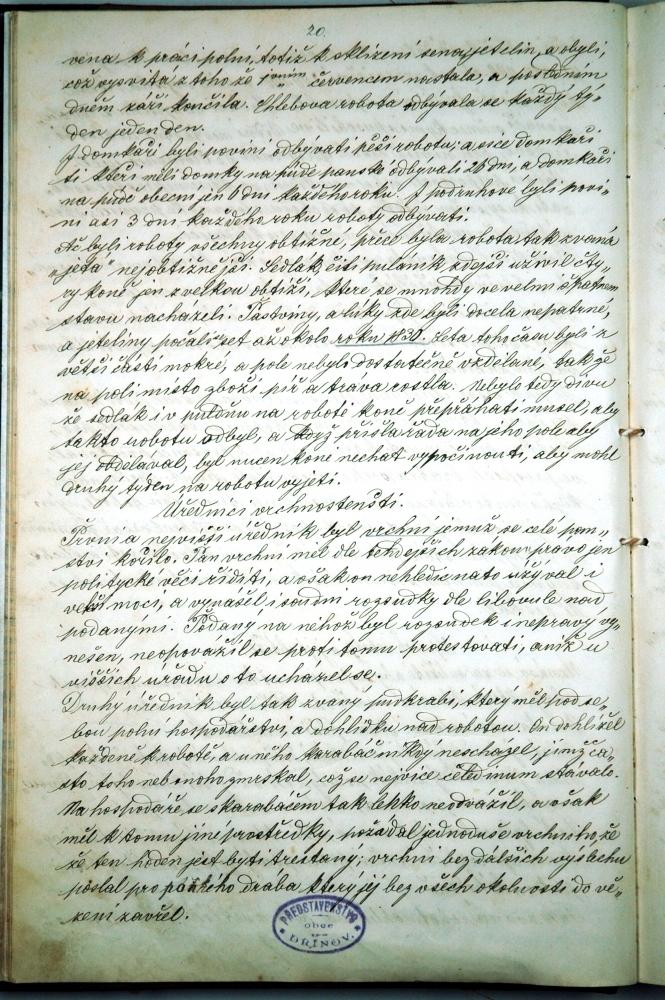 20.
vena k práci polní, totiž k sklízení sena, jetelin, a obylí,
což vysvítá z toho že prvním červencem nastala, a posledním
dnem září končila. Chlebova robota odbývala se každý tý„
den jeden den.
I domkáři byli povini odbývati pěší robotu; a sice domkáři
ti kteří měli domky na půdě panské odbývali 26 dní, a domkáři
na půdě obecní jen 6 dní každého roku. I podruhove byli povi„
ni asi 3 dni každého roku roboty odbývati.
Ač byli roboty všechny obtížné, přece byla robota tak zvaná
„jetá" nejobtížnější. Sedlák, čili pulánik zdejší uživil čty„
ry koně jen z velkou obtíží, které se mnohdy ve velmi špatném
stavu nacházeli. Pastviny, a luky zde byli docela nepatrné,
a jeteliny počali set až okolo roku 1830. Leta toho času byli z
větší části mokré, a pole nebylo dostatečně vzdělané, tak že
na poli místo zboží píř a tráva rostla. Nebylo tedy divu
že sedlák i v puldnu na robotě koně přepřáhati musel, aby
takto robotu odbyl, a když přišla řada na jeho pole aby
jej obdělával, byl nucen koně nechat vypočinouti, aby mohl
druhý tyden na robotu vyjeti.
Úředníci vrchnostenští.
První a nejvišší úředník byl vrchní jemuž se celé pan„
ství kořilo. Pan vrchní měl dle tehdejších zákonu právo jen
politycké věci říditi, a však on nehledíc na to užýval i
vetší moci, a vynášel i soudní rozsudky dle libovule nad
podanými. Podaný na něhož byl rozsudek i nepravý vy„
nešen, neopovážil se proti tomu protestovati, aniž u
višších úřadu o to ucházel se.
Druhý úředník byl tak zvaný purkrabí, který měl pod se„
bou polní hospodářství, a dohlídku nad robotou. On dohlížel
každeně k robotě, a u něho karabáč nikdy nescházel, jímž ča„
sto toho neb onoho zmrskal, což se nejvíce čeledínum stávalo.
Na hospodáře se s karabáčem tak lehko neodvážil, a však
měl k tomu jiné prostředky, požádal jednoduše vrchního, že
že ten hoden jest býti trestaný; vrchní bez dálších výslechu
poslal pro panského drába který jej bez všech okolností do vě„
zení zavřel.
PŘEDSTAVENSTVO
obce
DŘÍNOV.